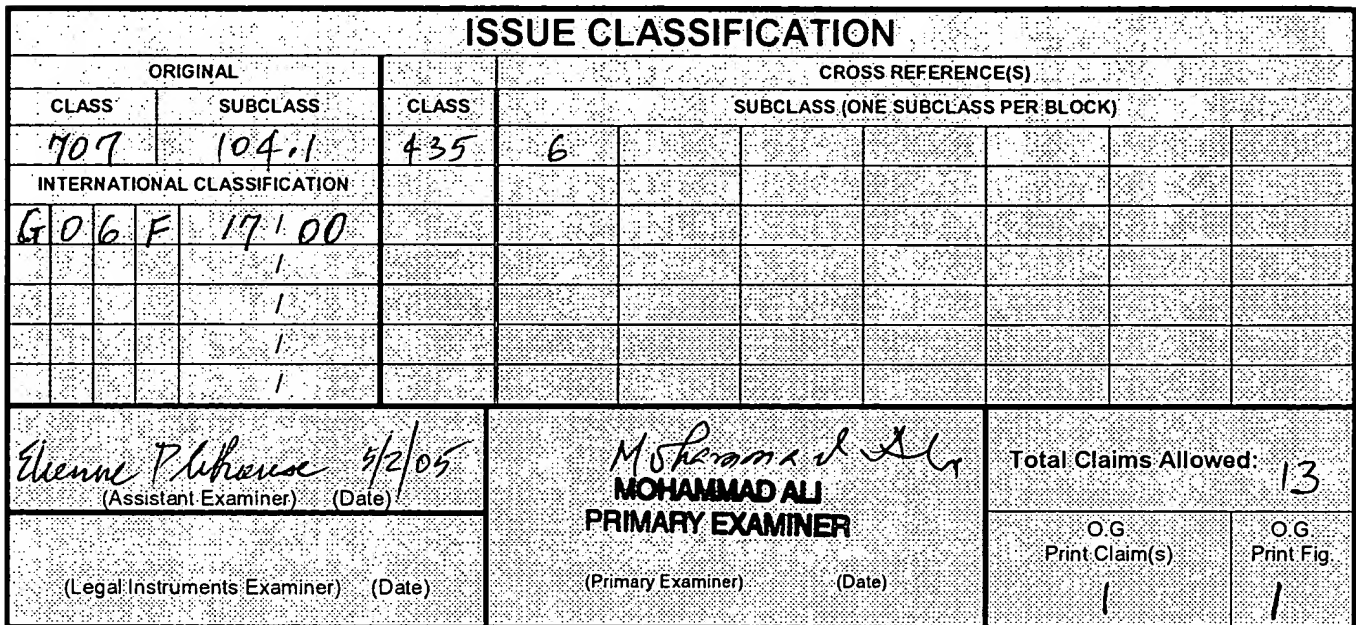 ISSUE CLASSIFICATION
ORIGINAL CROSS REFERENCE(S)
CLASS SUBCLASS CLASS SUBCLASS (ONE SUBCLASS PER BLOCK)
707 104.1 435 6
INTERNATIONAL CLASSIFICATION
G 0 6 F 17/00
/
/
/
/
5/2/05
(Assistant Examiner) (Date)
(Legal Instruments Examiner) (Date)
Mohammad Ali
MOHAMMAD ALI
PRIMARY EXAMINER
(Primary Examiner) (Date)
Total Claims Allowed: 13
O.G. O.G.
Print Claim(s) Print Fig.
1 1